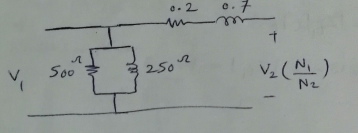 0.2 0.7
+
V₁ 500 Ω 250 Ω V₂ (N₁/N₂)
-